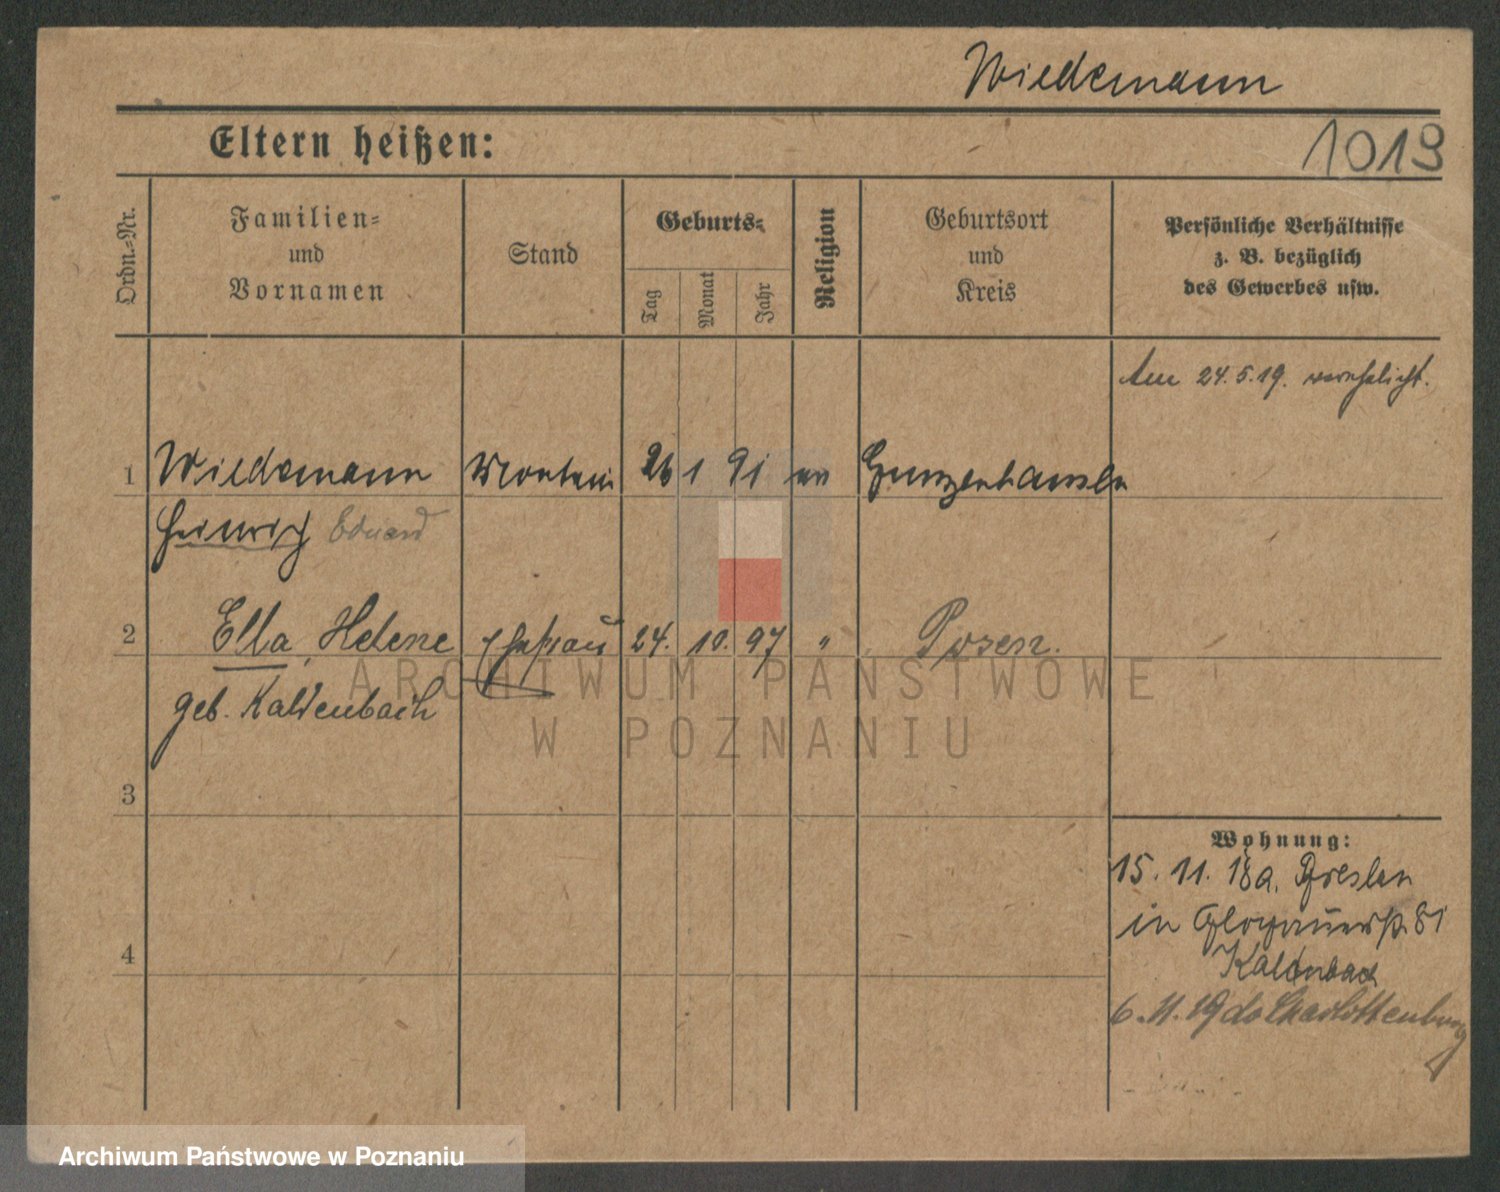 Wiedemann
Eltern heißen:
1019
Ordn.=Nr.
Familien=
und
Vornamen
Stand
Geburts=
Tag
Monat
Jahr
Religion
Geburtsort
und
Kreis
Persönliche Verhältnisse
z. B. bezüglich
des Gewerbes usw.
Am 24.5.19. verehelicht.
1 Wiedemann 26 1 91 ev Gunzenhausen
Heinrich Eduard
2 Ella, Helene Ehefrau 24. 10. 97 " Posen.
geb. Kaldenbach
3
4
Wohnung:
15. 11. 18 a. Breslau
in Glogauerstr. 81
Kaldenbach
6. 11. 19 do Charlottenburg
ARCHIWUM PAŃSTWOWE
W POZNANIU
Archiwum Państwowe w Poznaniu